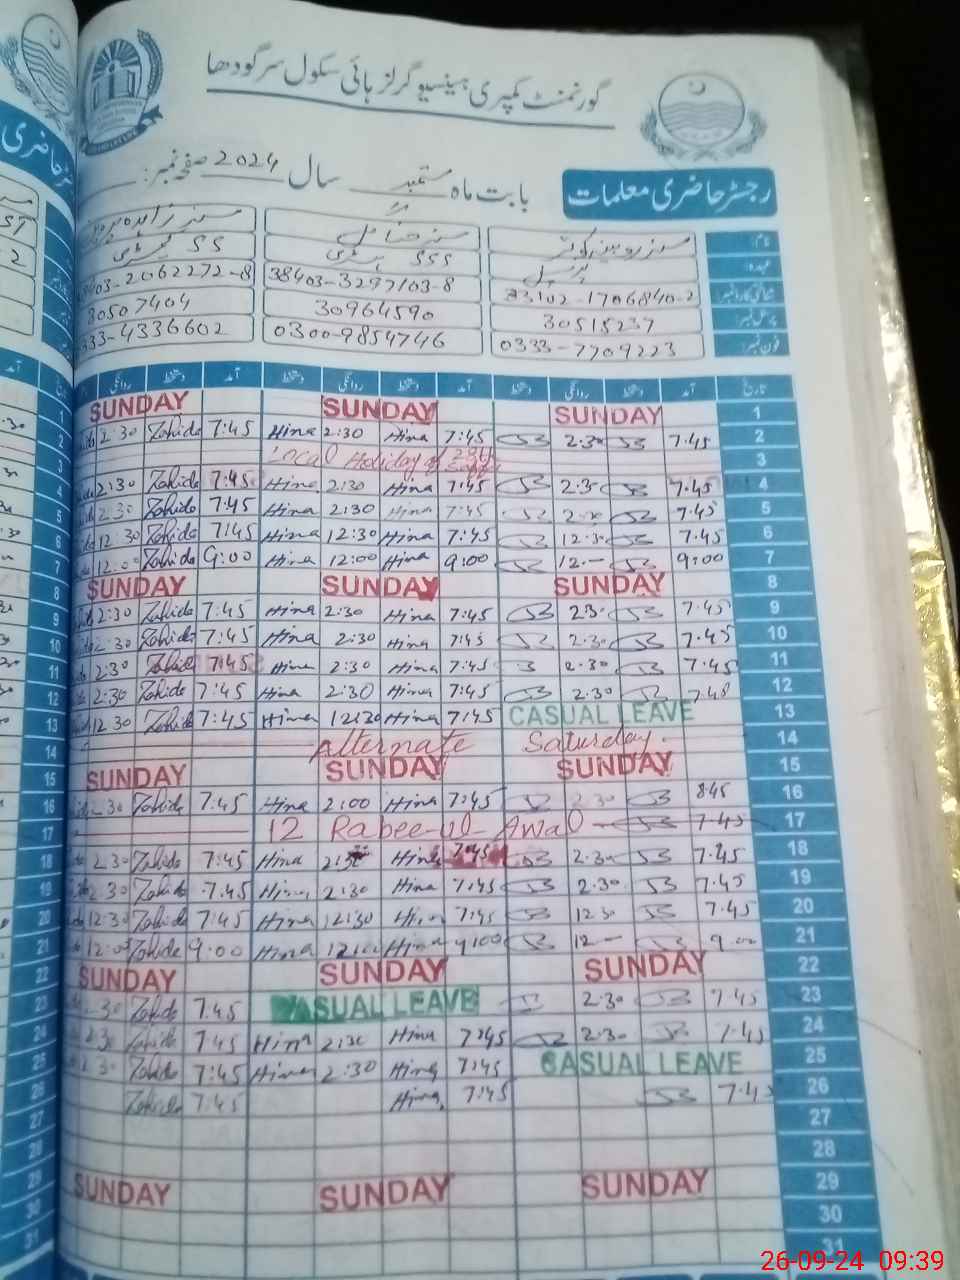 گورنمنٹ کمپری ہینسیو گرلز ہائی سکول سرگودھا
رجسٹر حاضری معلمات بابت ماہ ستمبر سال 2024 صفحہ نمبر:
نام:
عہدہ: پرنسپل SSS ہسٹری SS کیمسٹری
شناختی کارڈ نمبر: 33102-1706840-2 38403-3297103-8 38403-2062272-8
پرسنل نمبر: 30515237 30964590 30507404
فون نمبر: 0333-7709223 0300-9854746 333-4336602
تاریخ آمد دستخط روانگی دستخط آمد دستخط روانگی دستخط آمد دستخط روانگی
1 SUNDAY SUNDAY SUNDAY
2:30 Zahida 7:45 Hina 2:30 Hina 7:45 2.30 7.45 2
Local Holiday of 3
2:30 Zahida 7:45 Hina 2:30 Hina 7:45 2.30 7.45 4
2:30 Zahida 7:45 Hina 2:30 Hina 7:45 2.30 7.45 5
12:30 Zahida 7:45 Hina 12:30 Hina 7:45 12.30 7.45 6
12:00 Zahida 9:00 Hina 12:00 Hina 9:00 12 9:00 7
SUNDAY SUNDAY SUNDAY 8
2:30 Zahida 7:45 Hina 2:30 Hina 7:45 2.30 7.45 9
2:30 Zahida 7:45 Hina 2:30 Hina 7:45 2.30 7.45 10
2:30 Zahida 7:45 Hina 2:30 Hina 7:45 2.30 7.45 11
2:30 Zahida 7:45 Hina 2:30 Hina 7:45 2.30 7.48 12
12:30 Zahida 7:45 Hina 12:30 Hina 7:45 CASUAL LEAVE 13
Alternate Saturday. 14
SUNDAY SUNDAY SUNDAY 15
2:30 Zahida 7:45 Hina 2:00 Hina 7:45 2.30 8:45 16
12 Rabee-ul-Awal 7.45 17
2:30 Zahida 7:45 Hina 2:30 Hina 7:45 2.30 7.45 18
2:30 Zahida 7.45 Hina 2:30 Hina 7:45 2.30 7.45 19
12:30 Zahida 7:45 Hina 12:30 Hina 7:45 12.30 7.45 20
12:00 Zahida 9:00 Hina 12:00 Hina 9:00 12 9.00 21
SUNDAY SUNDAY SUNDAY 22
2:30 Zahida 7:45 CASUAL LEAVE 2.30 7.45 23
2:30 Zahida 7:45 Hina 2:30 Hina 7:45 2.30 7.45 24
2:30 Zahida 7:45 Hina 2:30 Hina 7:45 CASUAL LEAVE 25
Zahida 7:45 Hina 7:45 7.45 26
27
28
SUNDAY SUNDAY SUNDAY 29
30
31
26-09-24 09:39